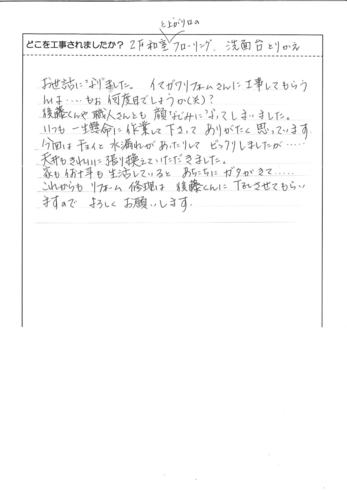 と上がり口の
どこを工事されましたか？ 2F和室フローリング、洗面台とりかえ
お世話になりました。イマガワリフォームさんに工事してもらう
んは‥‥もぉ何度目でしょうか(笑)?
後藤くんや職人さんとも顔なじみになってしまいました。
いつも一生懸命に作業して下さって ありがたく思っています
今回は チョイと水漏れがあったりして ビックリしましたが‥‥
天井もきれいに張り換えていただきました。
家も何十年も生活していると あちこちに ガタがきて‥‥‥
これからも リフォーム 修理は 後藤くんに させてもらい
ますので よろしく お願いします.